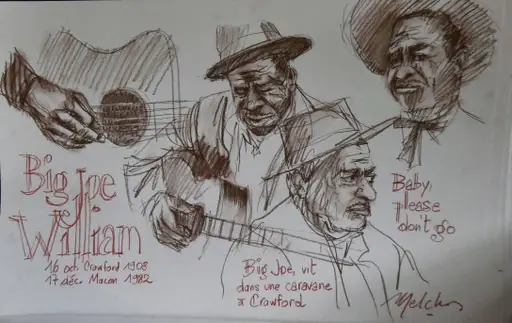 Big Joe
William
16 oct Crawford 1908
17 déc. Macon 1982
Big Joe, vit
dans une caravane
à Crawford
Baby,
please
don't go